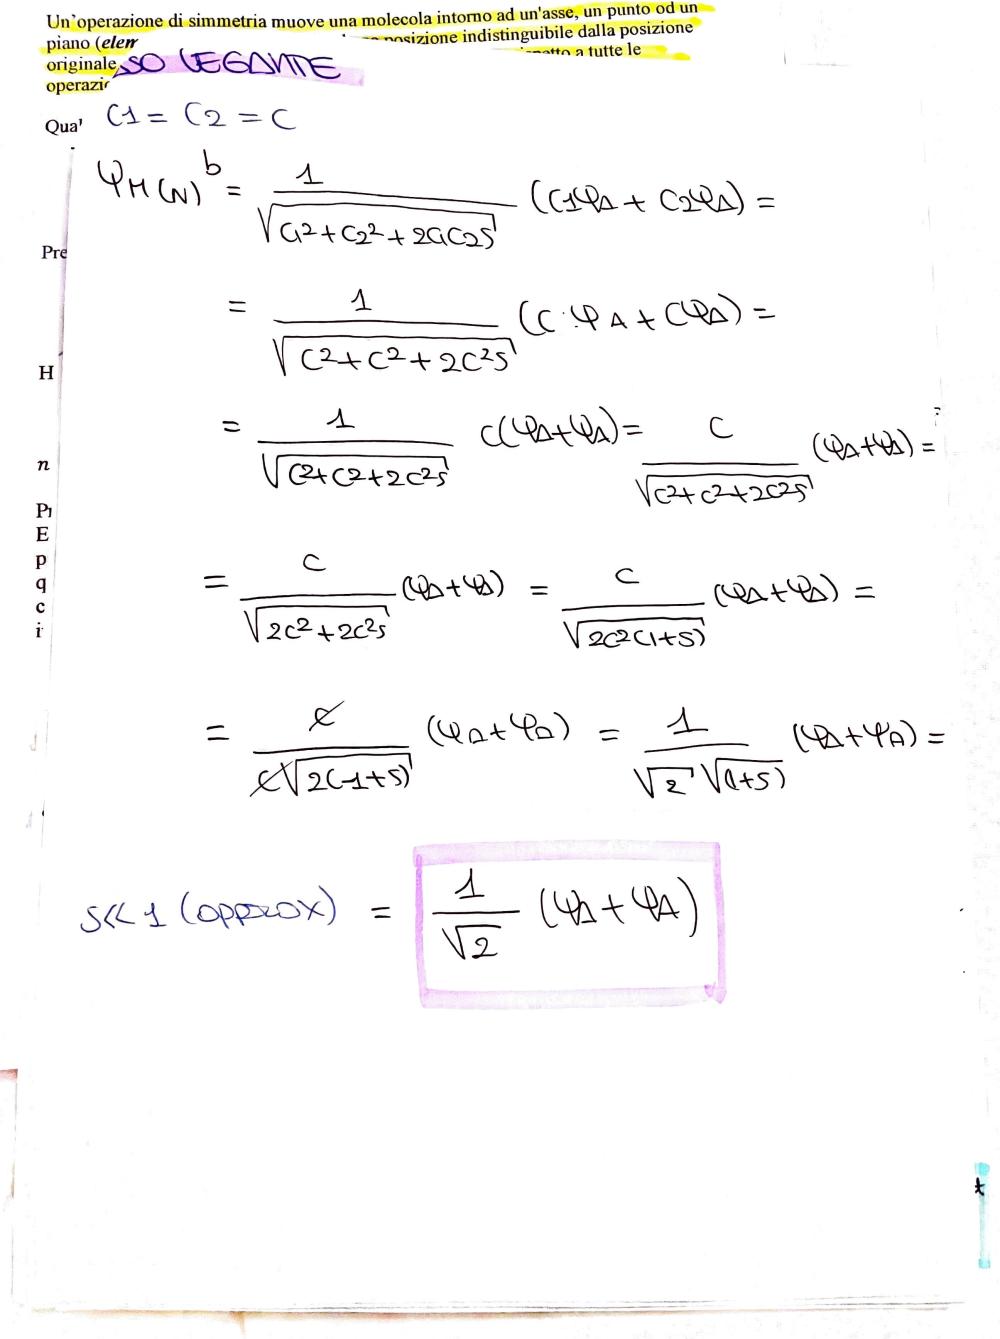 Un'operazione di simmetria muove una molecola intorno ad un'asse, un punto od un
piano (elem posizione indistinguibile dalla posizione
originale SO LEGANTE a tutte le
operazio
Qua' C1 = C2 = C
φM(N)^b = 1/√(C1²+C2²+2C1C2S) (C1φA + C2φA) =
Pre
= 1/√(C²+C²+2C²S) (C·φA + CφA) =
H
= 1/√(C²+C²+2C²S) C(φA+φA) = C/√(C²+C²+2C²S) (φA+φA) =
n
P
E
p
q
c
i
= C/√(2C²+2C²S) (φA+φA) = C/√(2C²(1+S)) (φA+φA) =
= C/C√(2(1+S)) (φA+φA) = 1/√2 √(1+S) (φA+φA) =
S<<1 (approx) = 1/√2 (φA+φA)
t